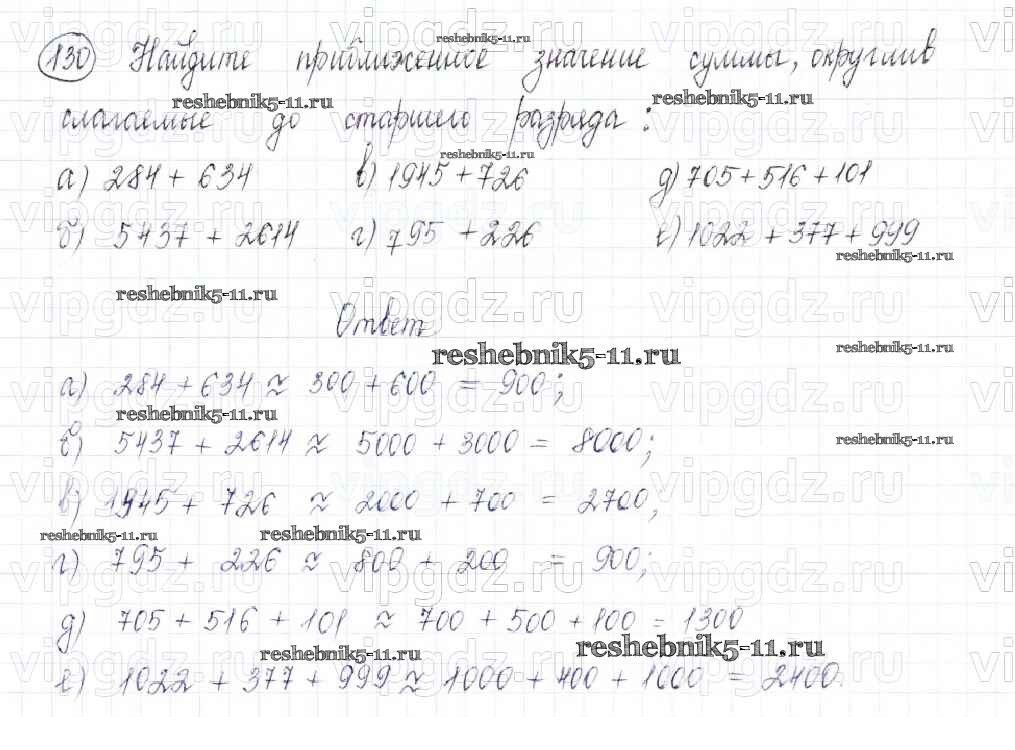 130 Найдите приближенное значение суммы, округлив
слагаемые до старшего разряда:
а) 284 + 634 в) 1945 + 726 д) 705 + 516 + 101
б) 5437 + 2614 г) 795 + 226 е) 1022 + 377 + 999
Ответ
а) 284 + 634 ≈ 300 + 600 = 900;
б) 5437 + 2614 ≈ 5000 + 3000 = 8000;
в) 1945 + 726 ≈ 2000 + 700 = 2700;
г) 795 + 226 ≈ 800 + 200 = 900;
д) 705 + 516 + 101 ≈ 700 + 500 + 100 = 1300
е) 1022 + 377 + 999 ≈ 1000 + 400 + 1000 = 2400.
reshebnik5-11.ru
vipgdz.ru